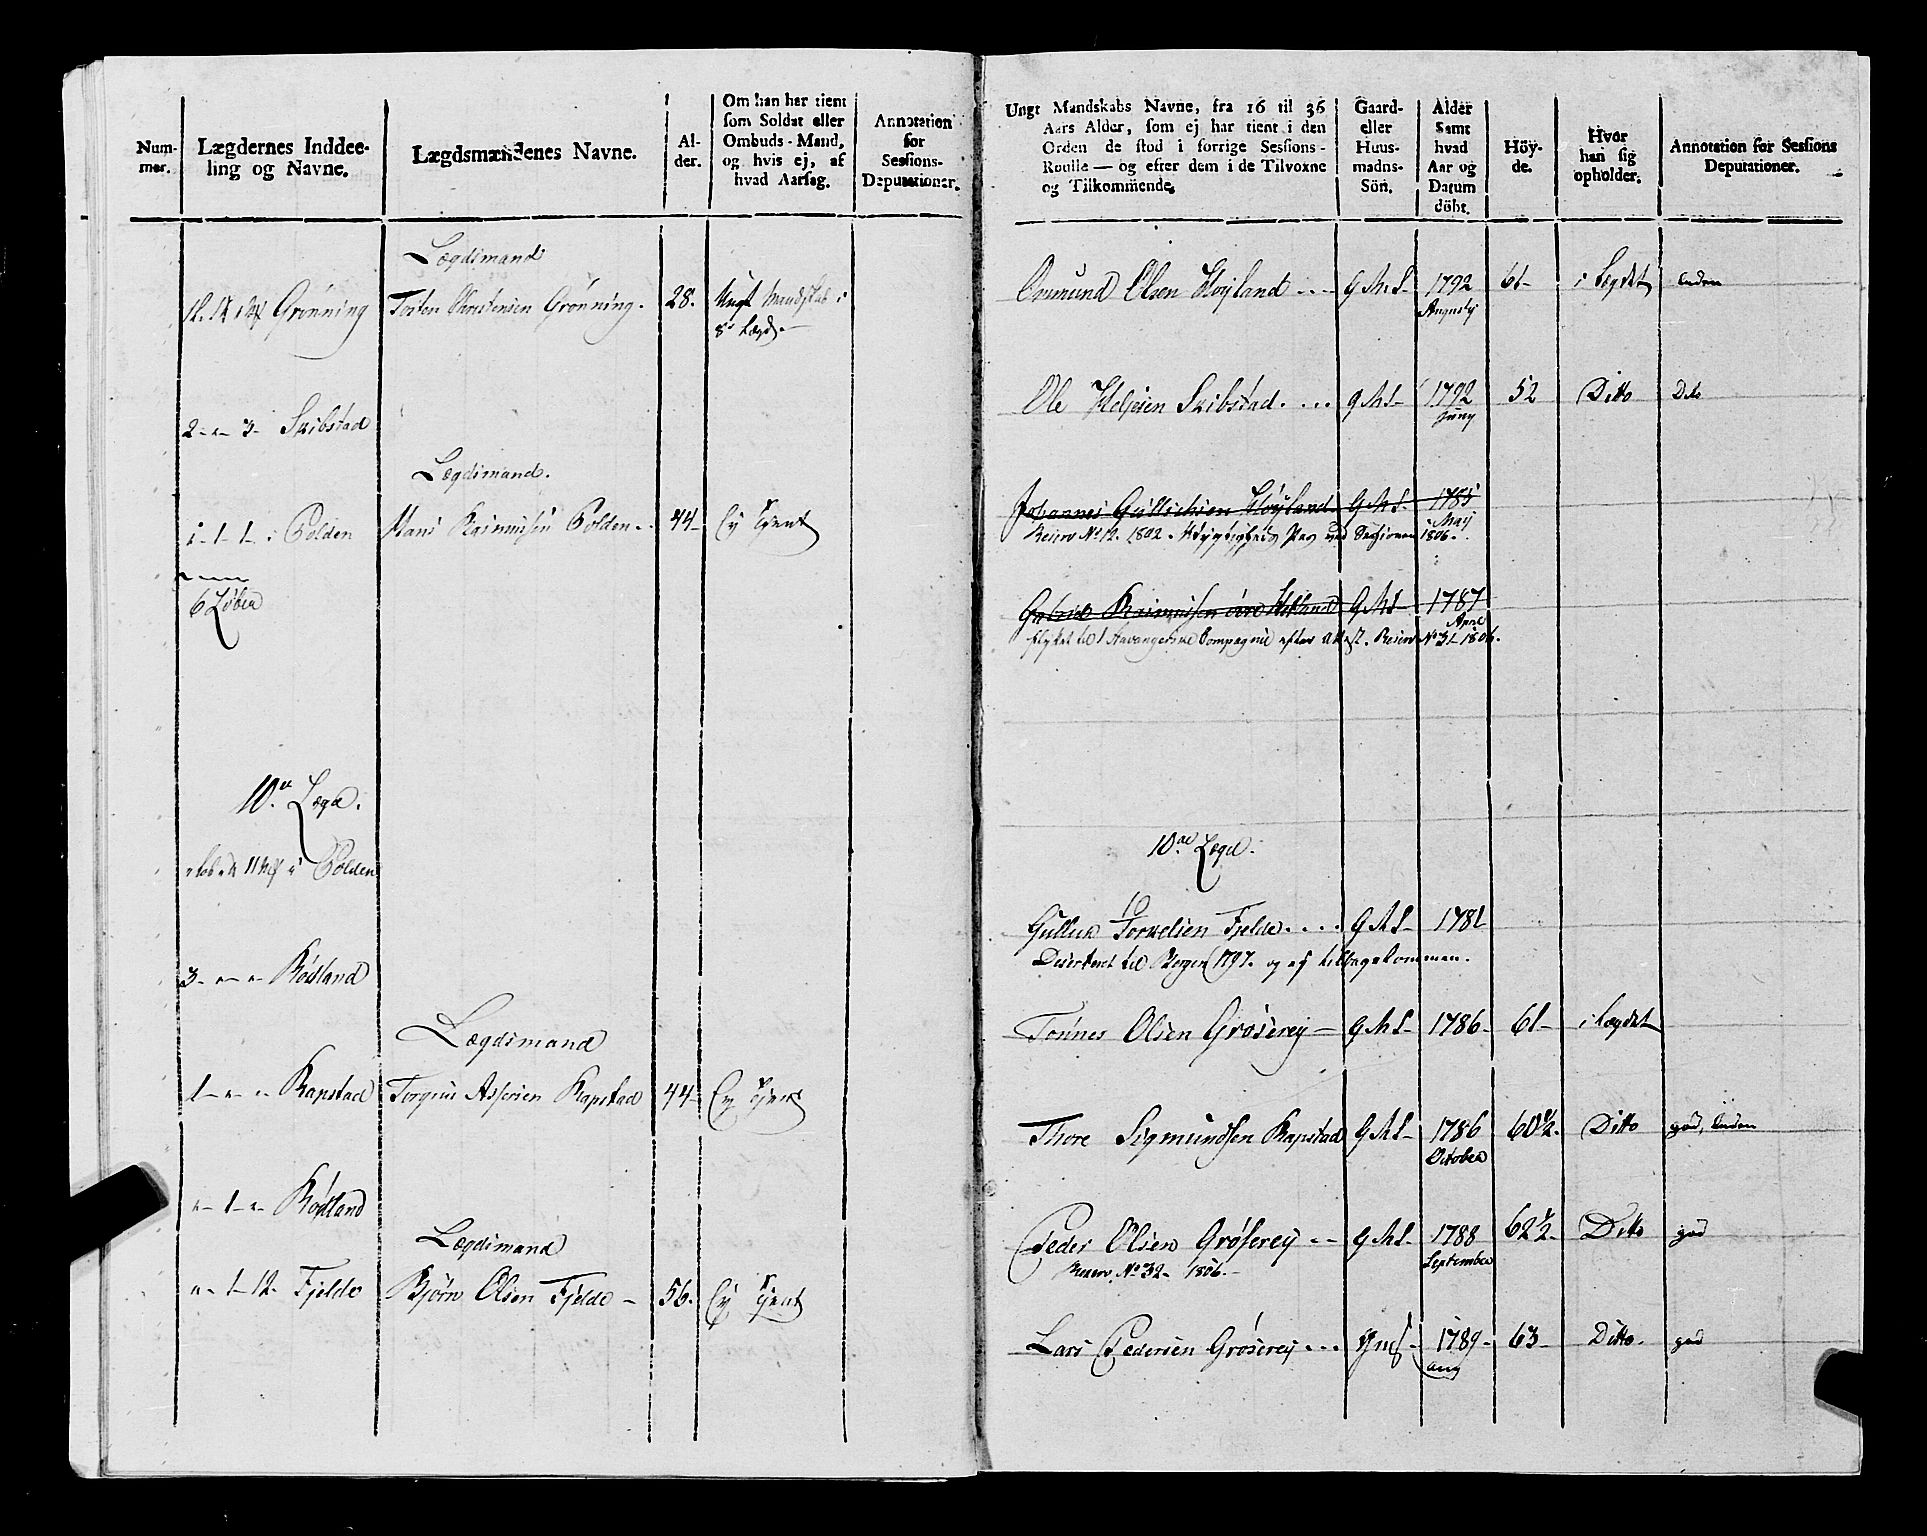 Num-
mer.
Lægdernes Inddee-
ling og Navne.
Lægdsmændenes Navne.
Al-
der.
Om han har tient
som Soldat eller
Ombuds-Mand,
og hvis ej, af
hvad Aarsag.
Annotation
for
Sessions-
Deputationer.
Lægdsmand
Grönning Tosten Christensen Grönning. 28. Ungt Mandskab i
8de Lægd.
2 - " - 3 - Skibstad
Lægdsmand.
1 - 1 - 1 - i Polden Hans Rasmussen Polden 44 Ej tjent
6 Løber
10de Lægd.
11 i Polden
3 - " - " Rödland
Lægdsmand
1 - " - " Rapstad Torgrius Assersen Rapstad 44 Ej tjent
" - 1 - " Rödland
Lægdsmand
" - 1 - 12 - Fjelde Bjørn Olsen Fjelde - 56. Ej tjent
Ungt Mandskabs Navne, fra 16 til 36
Aars Alder, som ej har tient i den
Orden de stod i forrige Sessions-
Roulle — og efter dem i de Tilvoxne
og Tilkommende.
Gaard-
eller
Huus-
mands-
Sön.
Alder
Samt
hvad
Aar og
Datum
döbt.
Höy-
de.
Hvor
han sig
opholder.
Annotation for Sessions
Deputationer.
Osmund Olsen Høyland G M S 1792 61 i Lægdet liden
Augusty
Ole Helgesen Skibstad G M S 1792 52 Ditto Dito
Juny
Johannes Gullichsen Höyland G M S 1785
May
Reserv No 12. 1802. Udygtigheds Pas ved Sessionen 1806.
Gabriel Rasmussen öve Hetland G M S 1787
April
flyttet til 1 Stavangerske Compagnie efter Attest. Reserv No 31 1806.
10de Lægd.
10
Gullich Torkelsen Fjelde G M S 1781
Deserteret til Bergen 1797. og ej tilbagekommen.
Tönnes Olsen Gröserey G M S 1786 61 i Lægdet
Thore Sigmundsen Rapstad G M S 1786 60 1/2 Ditto god, liden
October
Peder Olsen Gröserey G M S 1788 62 1/2 Ditto god
September
Reserv No 32 - 1806.
Lars Pedersen Gröserey G M S 1789 63 Ditto god
Aug